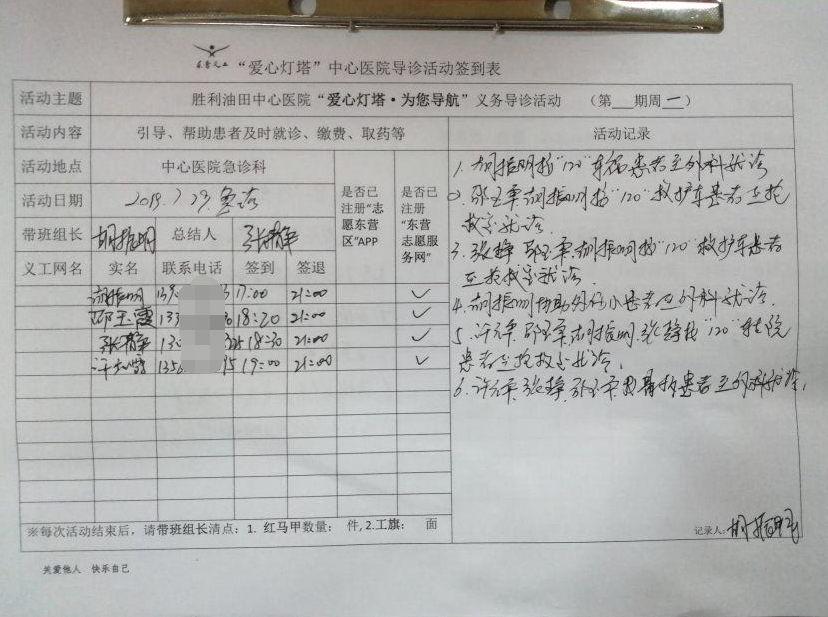 “爱心灯塔”中心医院导诊活动签到表
活动主题 胜利油田中心医院“爱心灯塔·为您导航”义务导诊活动 （第 期周一）
活动内容 引导、帮助患者及时就诊、缴费、取药等 活动记录
活动地点 中心医院急诊科
活动日期 2019.7.29.急诊
是否已注册“志愿东营区”APP
是否已注册“东营志愿服务网”
带班组长 胡振明 总结人 张静
义工网名 实名 联系电话 签到 签退
胡振明 17:00 21:00 ✓
邵玉霞 18:20 21:00 ✓
张静 18:30 21:00 ✓
许 19:00 21:00 ✓
1. 胡振明接“120”车 患者至外科就诊
2. 邵玉 胡振明接“120”救护车患者至抢
救室就诊.
3. 张静 邵玉 胡振明接“120”救护车患者
至抢救室就诊.
4. 胡振明协助 患者至外科就诊.
5. 许 邵玉 胡振明.张静接“120”转院
患者至抢救室就诊.
6. 许 张静.邵玉 患者至外科就诊.
※每次活动结束后，请带班组长清点：1. 红马甲数量： 件,2.工旗： 面
记录人：胡振明
关爱他人 快乐自己